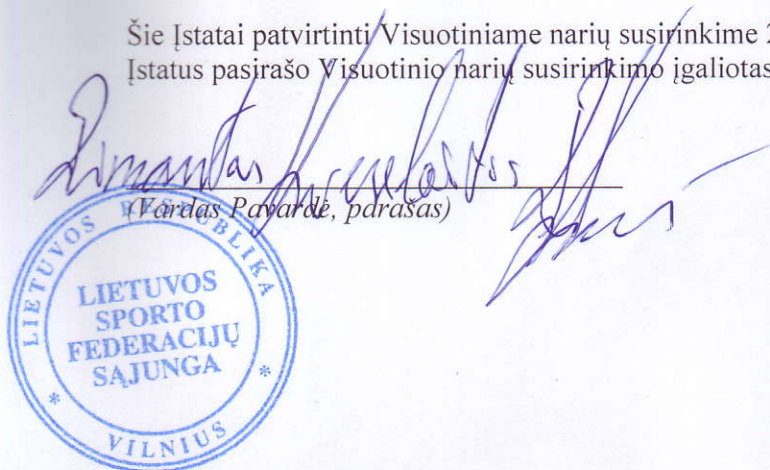 Šie Įstatai patvirtinti Visuotiniame narių susirinkime 2
Įstatus pasirašo Visuotinio narių susirinkimo įgaliotas
Rimantas
(Vardas Pavardė, parašas)
LIETUVOS RESPUBLIKA
LIETUVOS
SPORTO
FEDERACIJŲ
SĄJUNGA
* VILNIUS *